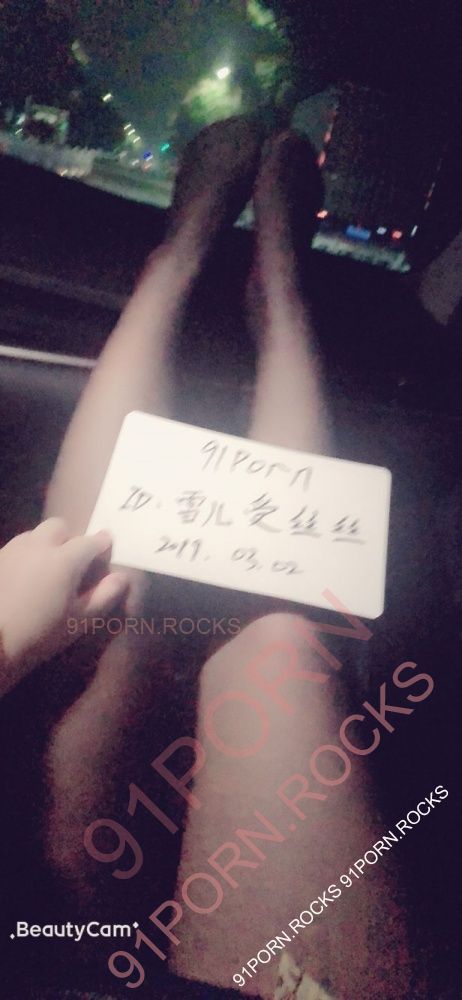 91Porn
ID. 雪儿爱丝丝
2019. 03.02
91PORN.ROCKS
91PORN
91PORN.ROCKS
91PORN.ROCKS 91PORN.ROCKS
.BeautyCam.